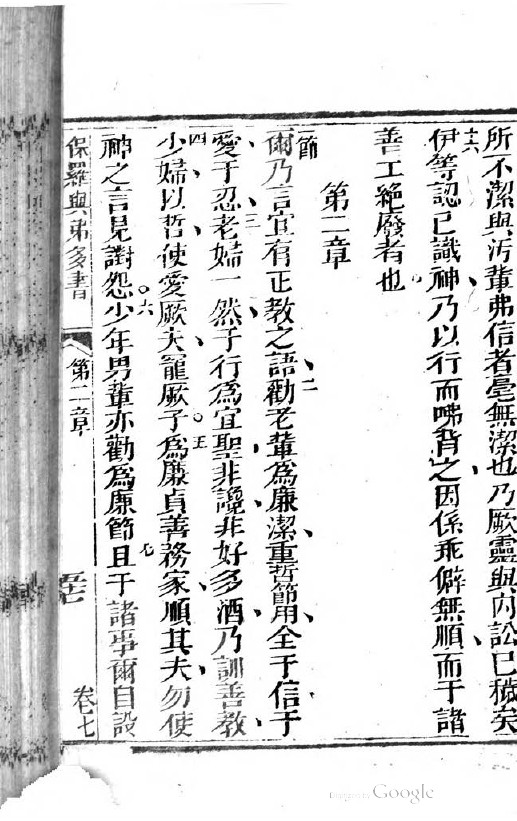 所不潔與污輩弗信者毫無潔也乃厥靈與內訟已穢矣
十六伊等認已識神乃以行而咈背之因係乖僻無順而于諸
善工絕廢者也
第二章
一節爾乃言宜有正教之語二勸老輩為廉潔重哲節用全于信于
愛于忍三老婦一然于行為宜聖非讒非好多酒乃訓善教
四少婦以哲使愛厥夫寵厥子五為廉貞善務家順其夫勿使
神之言見謗怨六少年男輩亦勸為廉節且七于諸事爾自設
保羅與弟多書
第二章
卷七
Digitized by Google